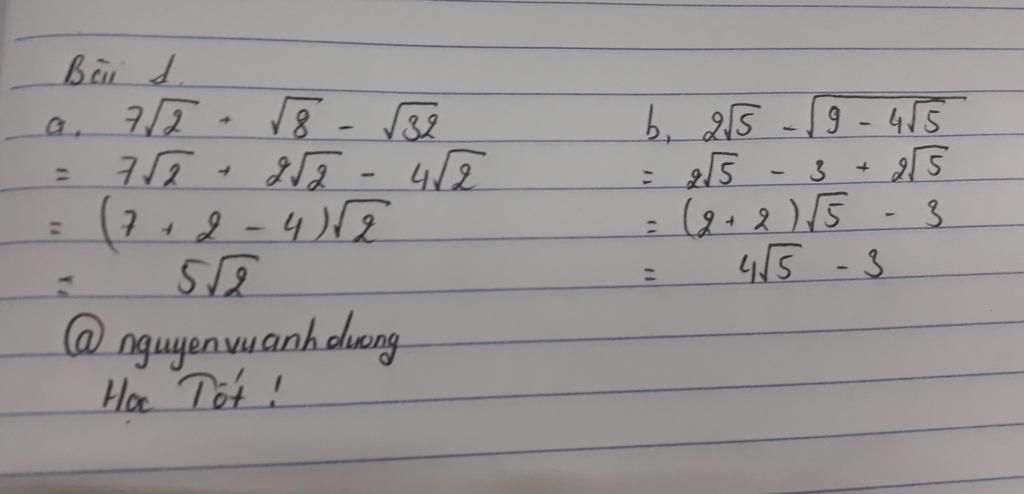 Bài 1.
a, 7√2 + √8 - √32
= 7√2 + 2√2 - 4√2
= (7 + 2 - 4)√2
= 5√2
b, 2√5 - √(9 - 4√5)
= 2√5 - 3 + 2√5
= (2 + 2)√5 - 3
= 4√5 - 3
@nguyenvuanhduong
Học Tốt !